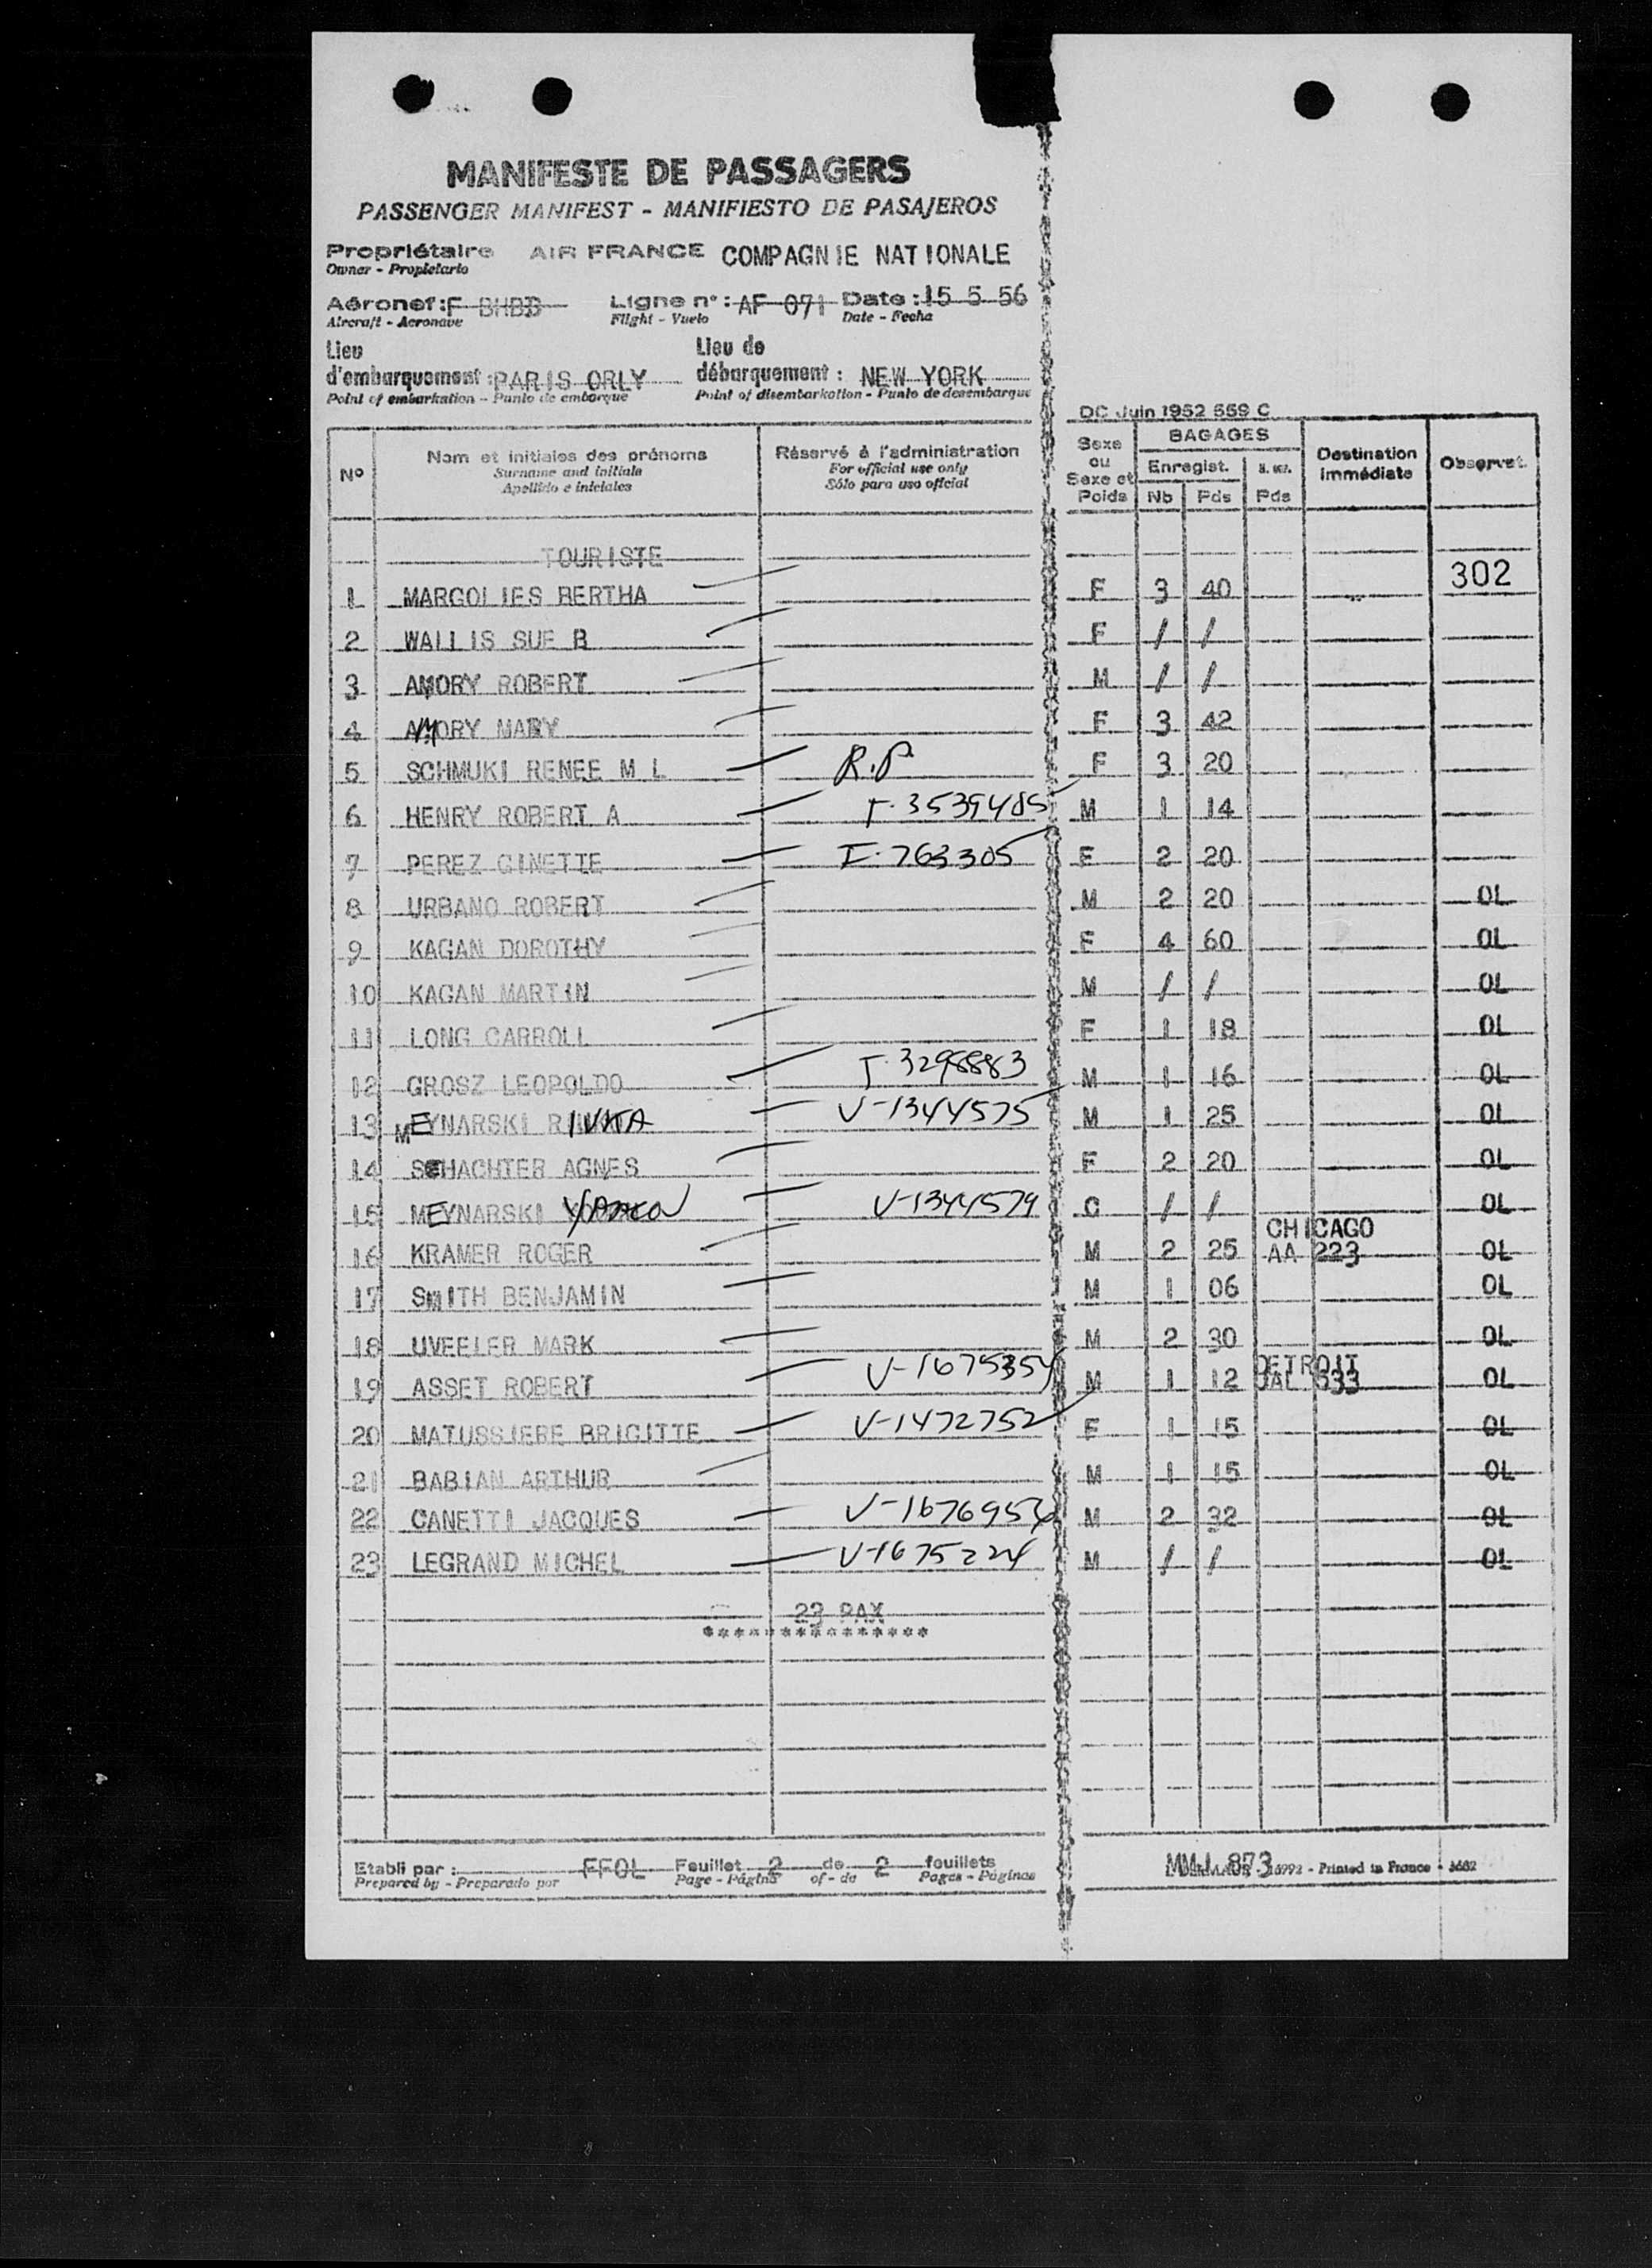 MANIFESTE DE PASSAGERS
PASSENGER MANIFEST - MANIFIESTO DE PASAJEROS
Propriétaire AIR FRANCE COMPAGNIE NATIONALE
Owner - Propietario
Aéronef : F BHBB Ligne n° : AF 071 Date : 15 5 56
Aircraft - Aeronave Flight - Vuelo Date - Fecha
Lieu Lieu de
d'embarquement : PARIS ORLY débarquement : NEW YORK
Point of embarkation - Punto de embarque Point of disembarkation - Punto de desembarque
DC Juin 1952 559 C
N° Nom et initiales des prénoms Réservé à l'administration Sexe ou Sexe et Poids BAGAGES Destination immédiate Observat.
Surname and initials For official use only Enregist.
Apellido e iniciales Sólo para uso oficial Nb Pds Pds
TOURISTE
302
1 MARGOLIES BERTHA F 3 40
2 WALLIS SUE B F / /
3 AMORY ROBERT M / /
4 AMORY MARY F 3 42
5 SCHMUKI RENEE M L R.P F 3 20
6 HENRY ROBERT A T-3539485 M 1 14
7 PEREZ GINETTE I-763305 F 2 20
8 URBANO ROBERT M 2 20 OL
9 KAGAN DOROTHY F 4 60 OL
10 KAGAN MARTIN M / / OL
11 LONG CARROLL F 1 18 OL
12 GROSZ LEOPOLDO T-3298883 M 1 16 OL
13 MEYNARSKI RIVKA V-1344575 M 1 25 OL
14 SCHACHTER AGNES F 2 20 OL
15 MEYNARSKI V-1344579 C / / OL
16 KRAMER ROGER M 2 25 CHICAGO AA 223 OL
17 SMITH BENJAMIN M 1 06 OL
18 UVEELER MARK M 2 30 OL
19 ASSET ROBERT V-1675354 M 1 12 DETROIT 633 OL
20 MATUSSIERE BRIGITTE V-1472752 F 1 15 OL
21 BABIAN ARTHUR M 1 15 OL
22 CANETTI JACQUES V-1676956 M 2 32 OL
23 LEGRAND MICHEL V-1675224 M / / OL
23 PAX
***************
Etabli par : FFOL Feuillet 2 de 2 feuillets MMJ 873
Prepared by - Preparado por Page - Página of - de Pages - Páginas Printed in France